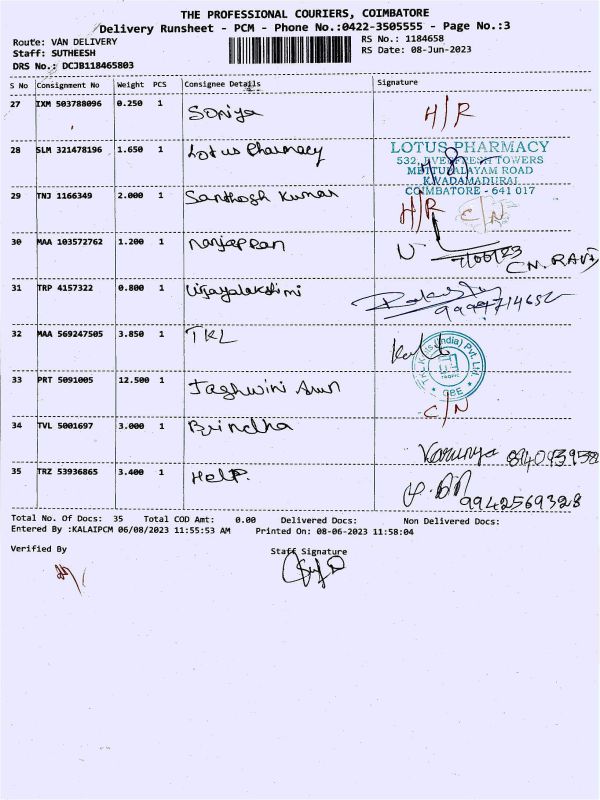 THE PROFESSIONAL COURIERS, COIMBATORE
Delivery Runsheet - PCM - Phone No.:0422-3505555 - Page No.:3
Route: VAN DELIVERY
RS No.: 1184658
Staff: SUTHEESH
RS Date: 08-Jun-2023
DRS No.: DCJB118465803
S No Consignment No Weight PCS Consignee Details Signature
27 IXM 503788096 0.250 1 Soniya H/R
28 SLM 321478196 1.650 1 Lotus Pharmacy
LOTUS PHARMACY
532, EVERFRESH TOWERS
METTUPALAYAM ROAD
COIMBATORE - 641 017
29 TNJ 1166349 2.000 1 Santhosh Kumar H/R C/N
30 MAA 103572762 1.200 1 Nanjappan
CN. RAVI
31 TRP 4157322 0.800 1 Vijayalakshmi
32 MAA 569247505 3.850 1 TKL
33 PRT 5091005 12.500 1 C/N
34 TVL 5001697 3.000 1 Brindha
Karunya
35 TRZ 53936865 3.400 1 HelP.
9942569328
Total No. Of Docs: 35 Total COD Amt: 0.00 Delivered Docs: Non Delivered Docs:
Entered By :KALAIPCM 06/08/2023 11:55:53 AM Printed On: 08-06-2023 11:58:04
Verified By Staff Signature